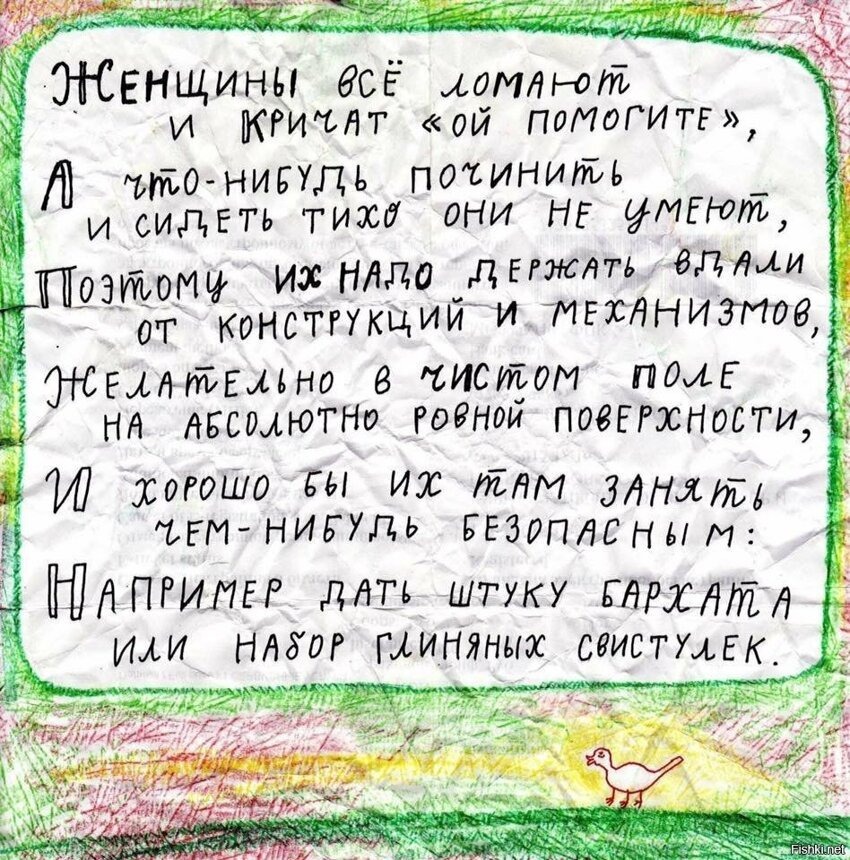 Женщины всё ломают
и кричат «ой помогите»,
А что-нибудь починить
и сидеть тихо они не умеют,
Поэтому их надо держать вдали
от конструкций и механизмов,
Желательно в чистом поле
на абсолютно ровной поверхности,
И хорошо бы их там занять
чем-нибудь безопасным:
Например дать штуку бархата
или набор глиняных свистулек.
Fishki.net